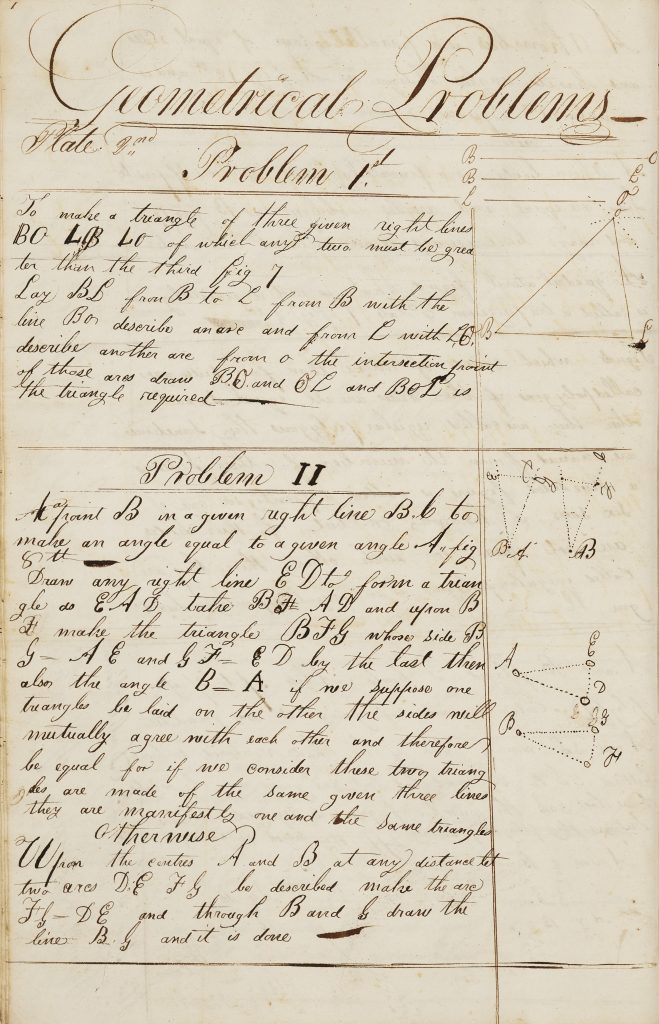 Geometrical Problems
Plate 2nd
Problem 1st
To make a triangle of three given right lines
BO LB LO of which any two must be grea
ter than the third fig 7
Lay BL from B to L from B with the
line BO describe an arc and from L with LO
describe another arc from o the intersection point
of those arcs draw BO and OL and BOL is
the triangle required
B O
B L
L O
O
B L
Problem II
At a point B in a given right line B.b to
make an angle equal to a given angle A fig
8th
Draw any right line ED to form a trian
gle as EAD take BF = AD and upon B
F make the triangle BFG whose side B
G = AE and GF = ED by the last then
also the angle B = A if we suppose one
triangles be laid on the other the sides will
mutually agree with each other and therefore
be equal for if we consider these two triang
les are made of the same given three lines
they are manifestly one and the same triangles
Otherwise
Upon the centres A and B at any distance let
two arcs D.E FG be described make the arc
FG = DE and through B and G draw the
line B.G and it is done
B A
A B
A E
D
B G
F